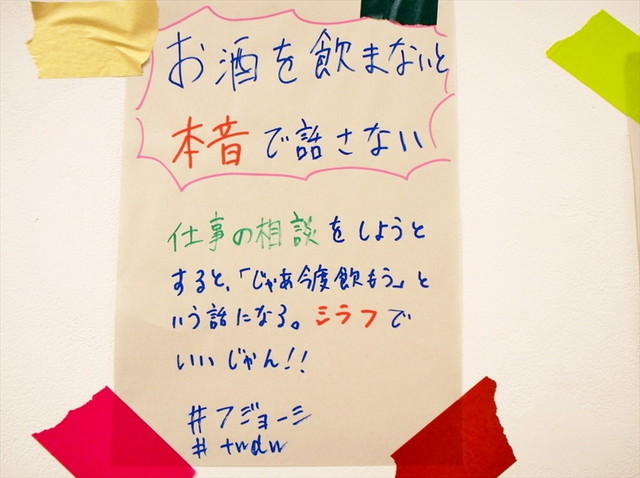 お酒を飲まないと
本音で話さない
仕事の相談をしようと
すると、「じゃあ今度飲もう」と
いう話になる。シラフで
いいじゃん!!
#フジョーシ
#twdw